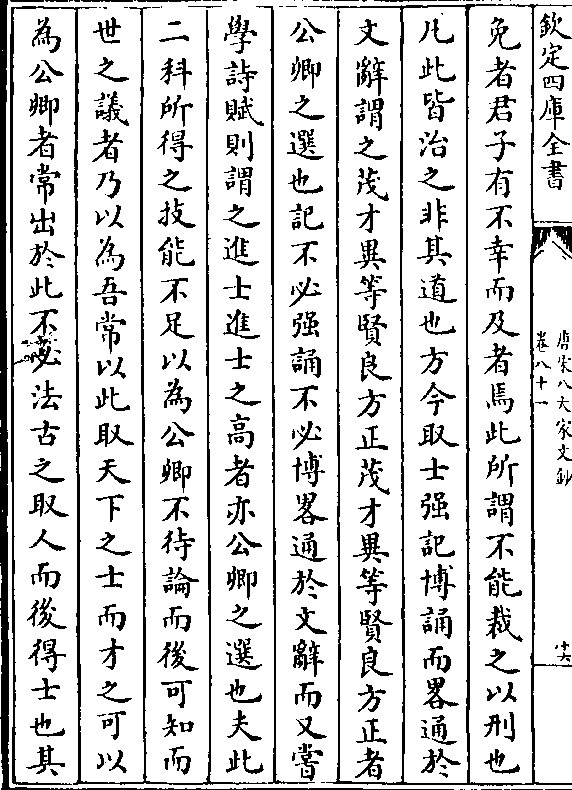 欽定四庫全書
唐宋八大家文鈔
卷八十一
十六
免者君子有不幸而及者焉此所謂不能裁之以刑也
凡此皆治之非其道也方今取士强記博誦而畧通於
文辭謂之茂才異等賢良方正茂才異等賢良方正者
公卿之選也記不必强誦不必博畧通於文辭而又嘗
學詩賦則謂之進士進士之高者亦公卿之選也夫此
二科所得之技能不足以為公卿不待論而後可知而
世之議者乃以為吾常以此取天下之士而才之可以
為公卿者常出於此不必法古之取人而後得士也其